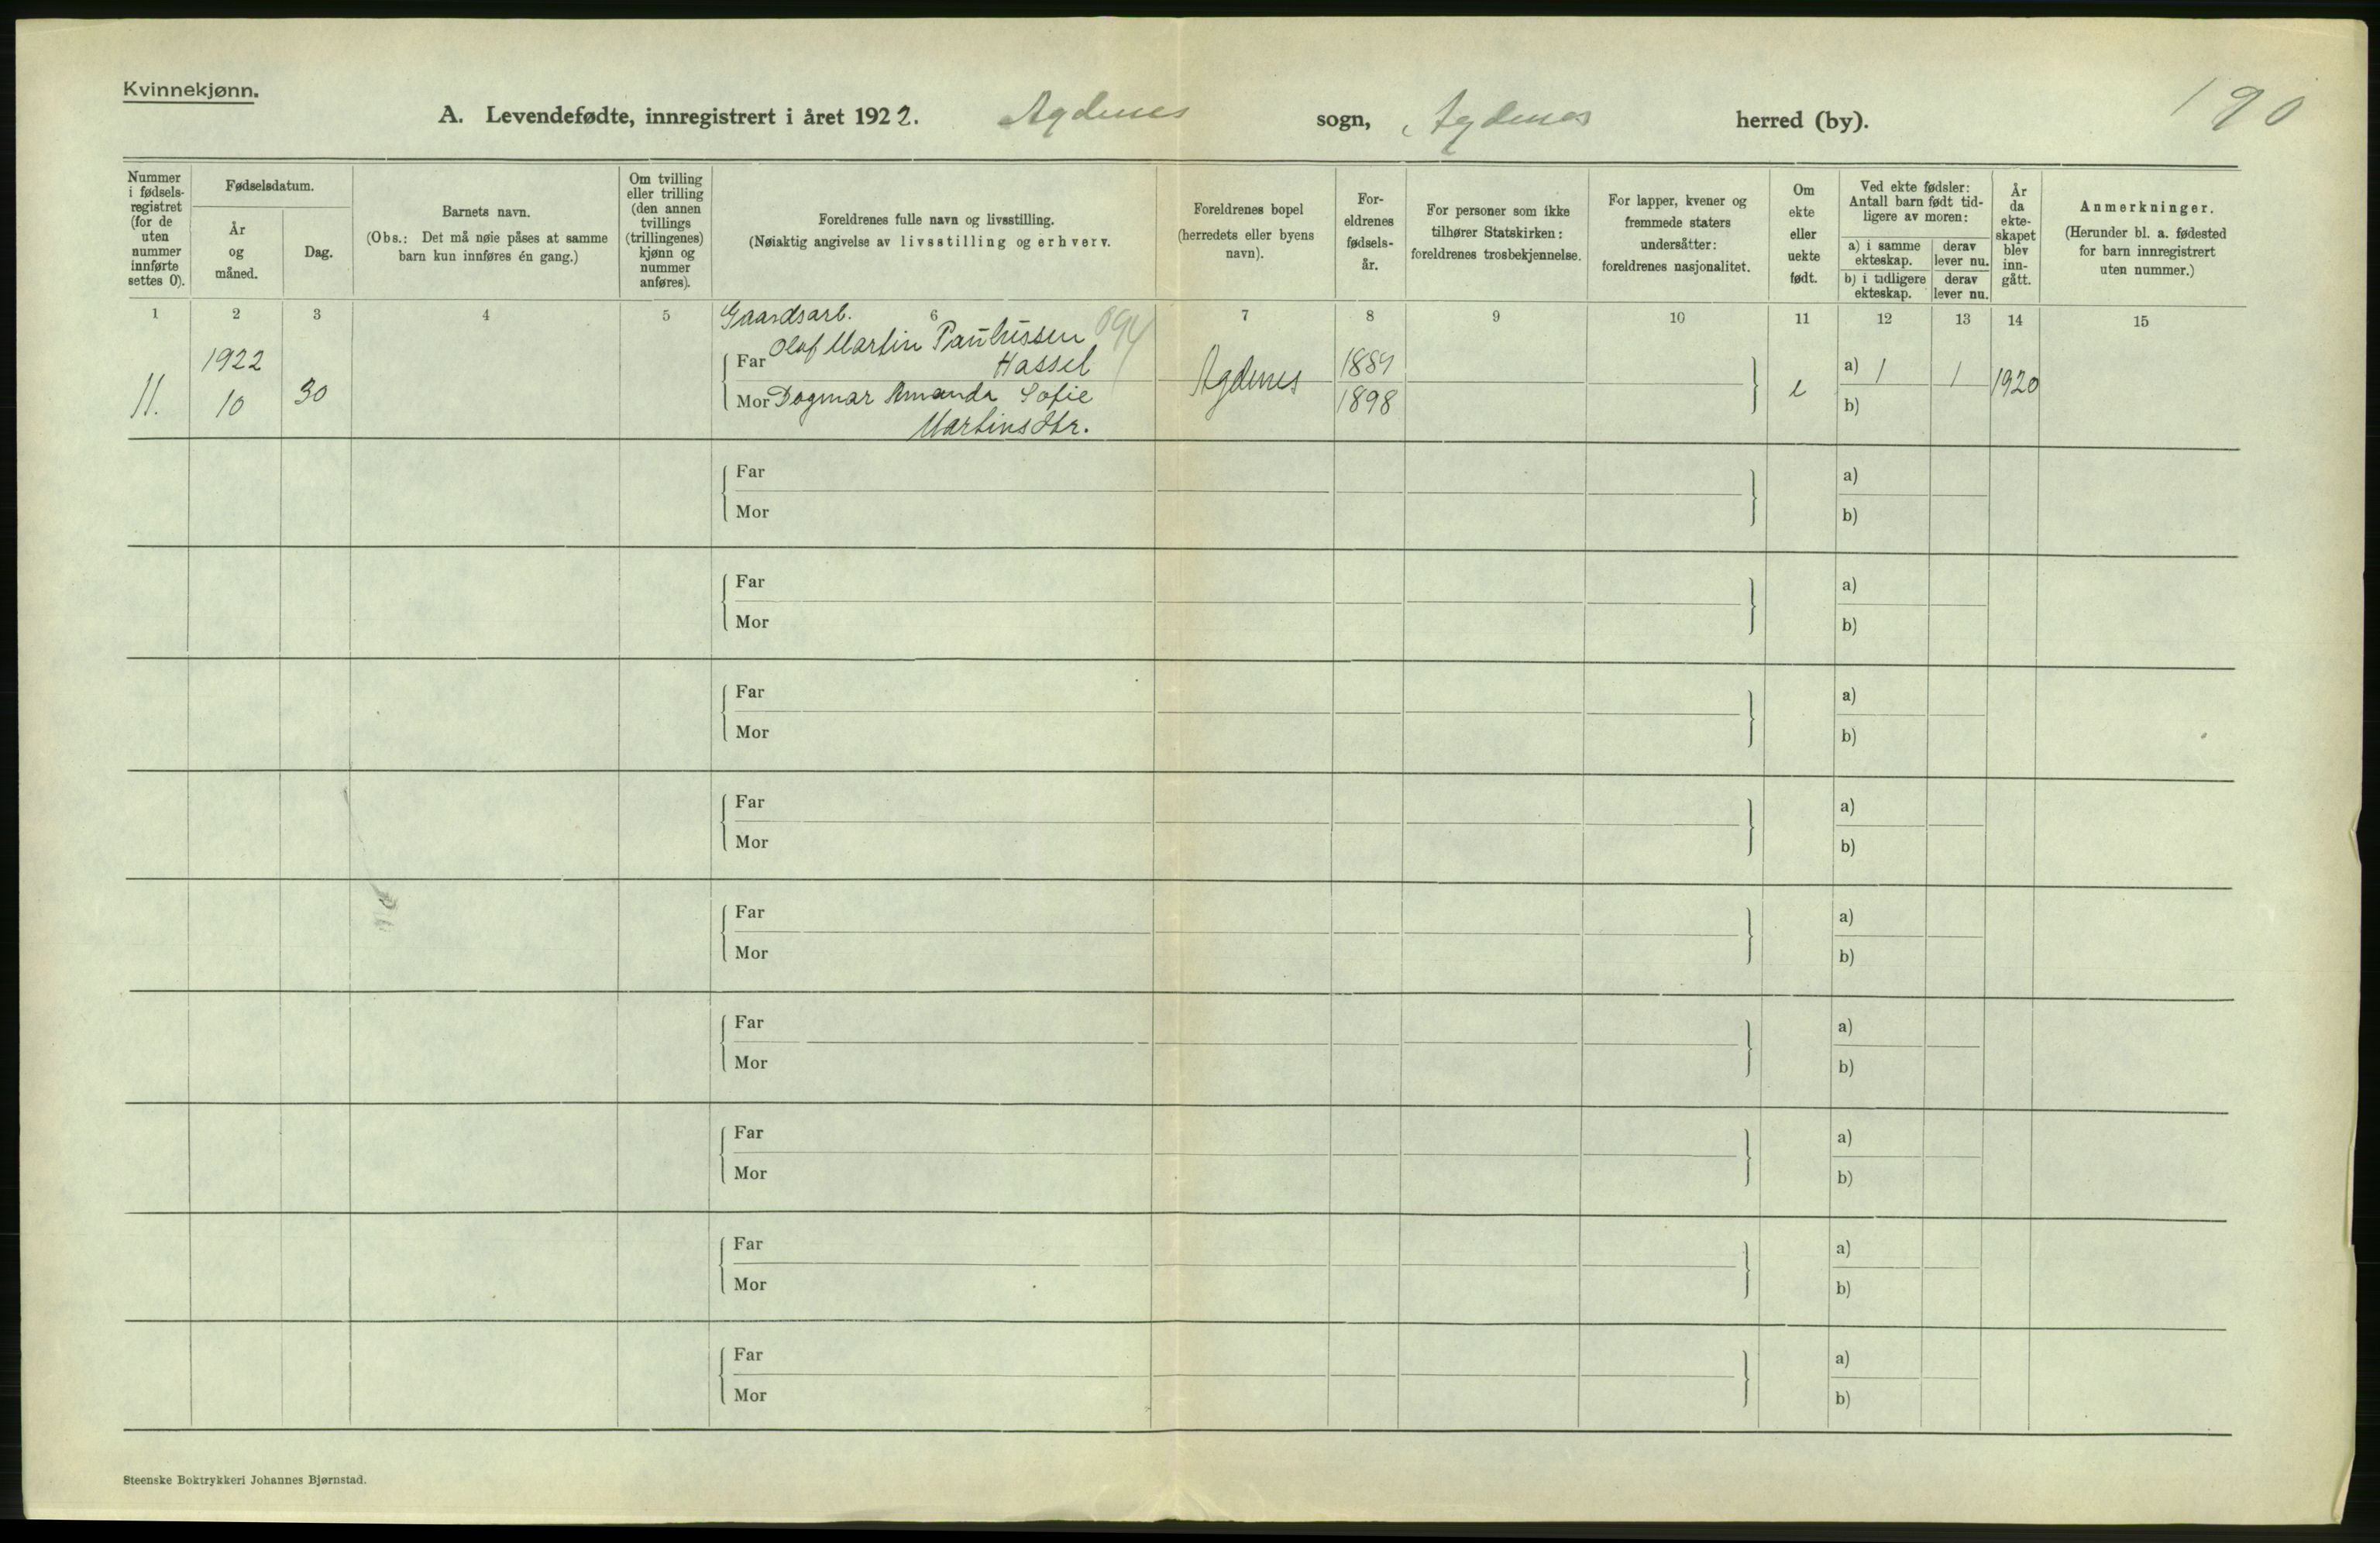 Kvinnekjønn.
A. Levendefødte, innregistrert i året 1922. Agdenes sogn, Agdenes herred (by).
190
Nummer i fødsels-registret (for de uten nummer innførte settes 0).
Fødselsdatum.
År og måned.
Dag.
Barnets navn.
(Obs.: Det må nøie påses at samme barn kun innføres én gang.)
Om tvilling eller trilling (den annen tvillings (trillingenes) kjønn og nummer anføres).
Foreldrenes fulle navn og livsstilling.
(Nøiaktig angivelse av livsstilling og erhverv.
Foreldrenes bopel (herredets eller byens navn).
For-eldrenes fødsels-år.
For personer som ikke tilhører Statskirken: foreldrenes trosbekjennelse.
For lapper, kvener og fremmede staters undersåtter: foreldrenes nasjonalitet.
Om ekte eller uekte født.
Ved ekte fødsler: Antall barn født tid-ligere av moren:
a) i samme ekteskap.
derav lever nu.
b) i tidligere ekteskap.
derav lever nu.
År da ekte-skapet blev inn-gått.
Anmerkninger.
(Herunder bl. a. fødested for barn innregistrert uten nummer.)
1 2 3 4 5 6 7 8 9 10 11 12 13 14 15
Gaardsarb. 094
11. 1922 10 30
Far Olaf Martin Paulussen Hassel
Mor Dagmar Amanda Sofie Martinsdtr.
Agdenes
1889
1898
e
a) 1 1 1920
b)
Far a)
Mor b)
Far a)
Mor b)
Far a)
Mor b)
Far a)
Mor b)
Far a)
Mor b)
Far a)
Mor b)
Far a)
Mor b)
Far a)
Mor b)
Far a)
Mor b)
Steenske Boktrykkeri Johannes Bjørnstad.